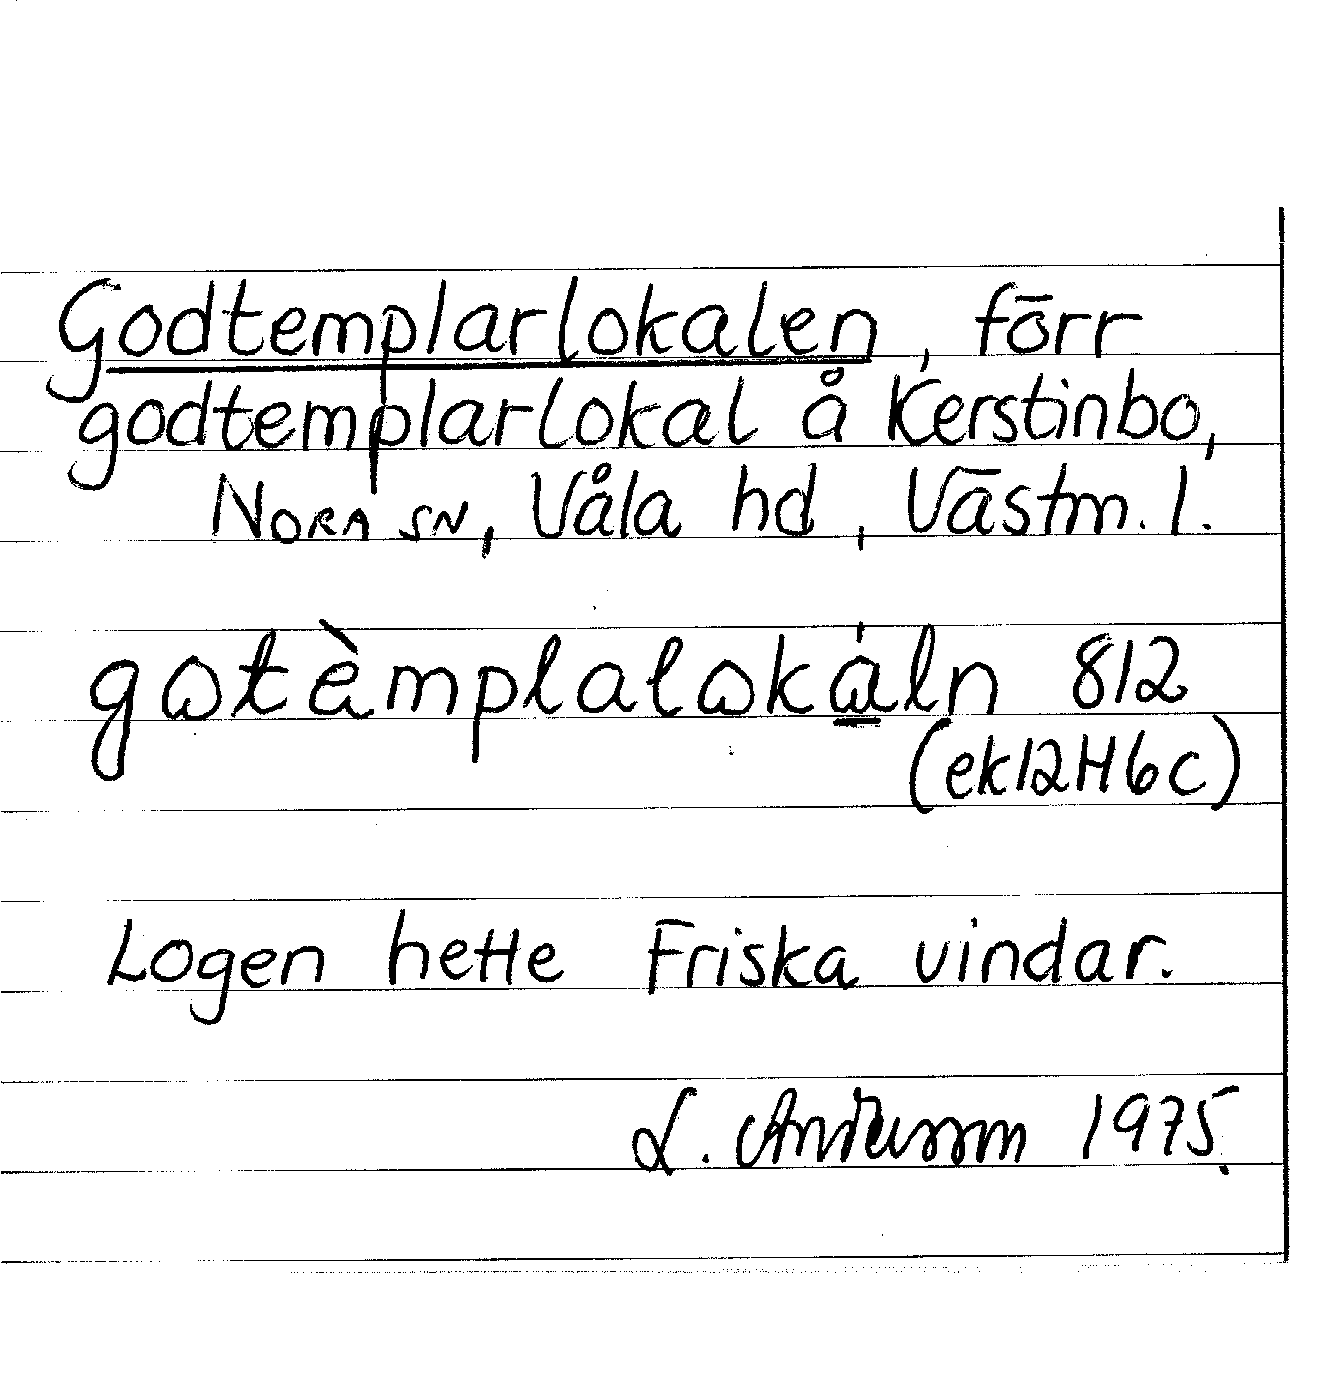 Godtemplarlokalen, förr
godtemplarlokal å Kerstinbo,
NORA SN, Våla hd, Västm. l.
gωtèmplalωkáln 812
(ek12H6c)
Logen hette Friska vindar.
L. Andersson 1975.